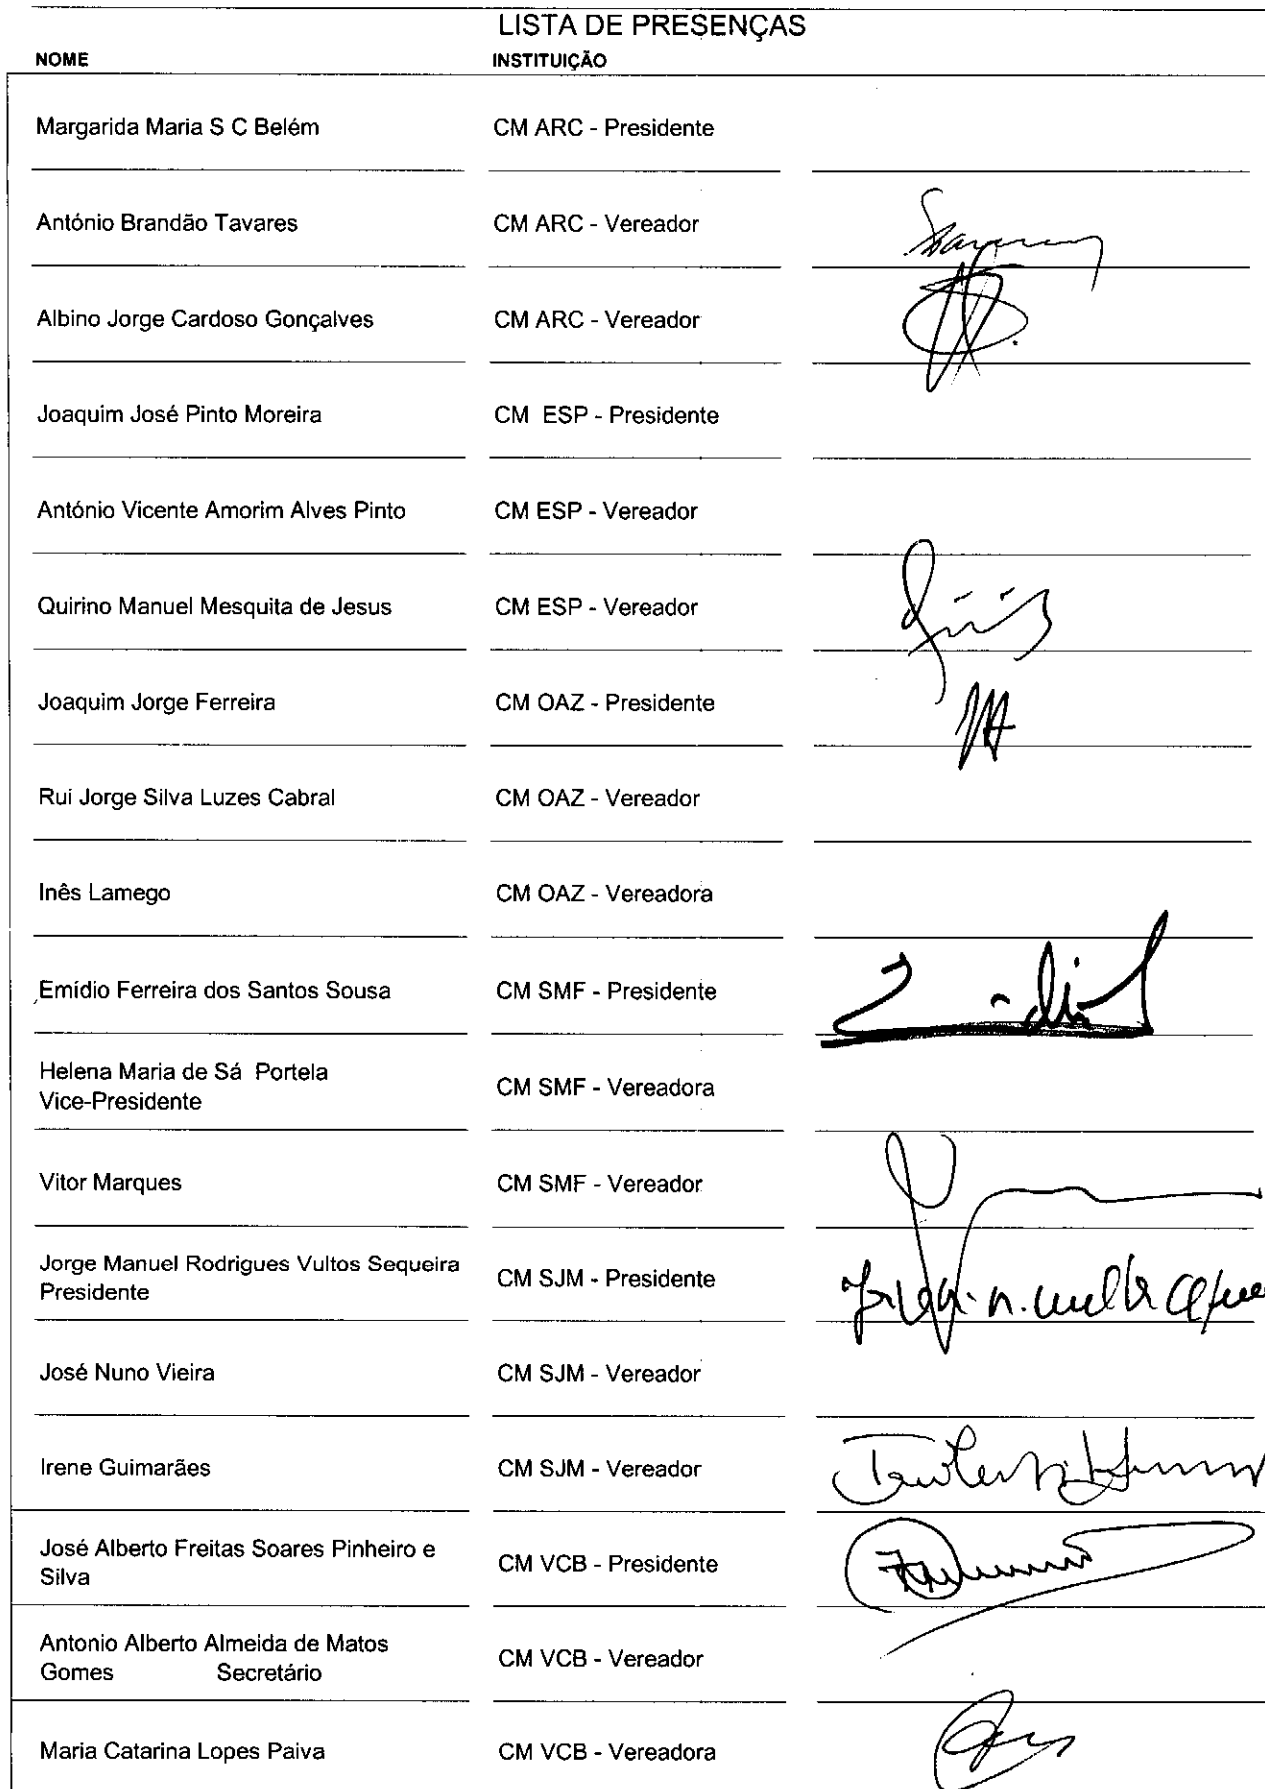 LISTA DE PRESENÇAS
NOME INSTITUIÇÃO
Margarida Maria S C Belém CM ARC - Presidente
António Brandão Tavares CM ARC - Vereador
Albino Jorge Cardoso Gonçalves CM ARC - Vereador
Joaquim José Pinto Moreira CM ESP - Presidente
António Vicente Amorim Alves Pinto CM ESP - Vereador
Quirino Manuel Mesquita de Jesus CM ESP - Vereador
Joaquim Jorge Ferreira CM OAZ - Presidente
Rui Jorge Silva Luzes Cabral CM OAZ - Vereador
Inês Lamego CM OAZ - Vereadora
Emídio Ferreira dos Santos Sousa CM SMF - Presidente
Helena Maria de Sá Portela
Vice-Presidente CM SMF - Vereadora
Vitor Marques CM SMF - Vereador
Jorge Manuel Rodrigues Vultos Sequeira
Presidente CM SJM - Presidente
José Nuno Vieira CM SJM - Vereador
Irene Guimarães CM SJM - Vereador
José Alberto Freitas Soares Pinheiro e
Silva CM VCB - Presidente
Antonio Alberto Almeida de Matos
Gomes Secretário CM VCB - Vereador
Maria Catarina Lopes Paiva CM VCB - Vereadora